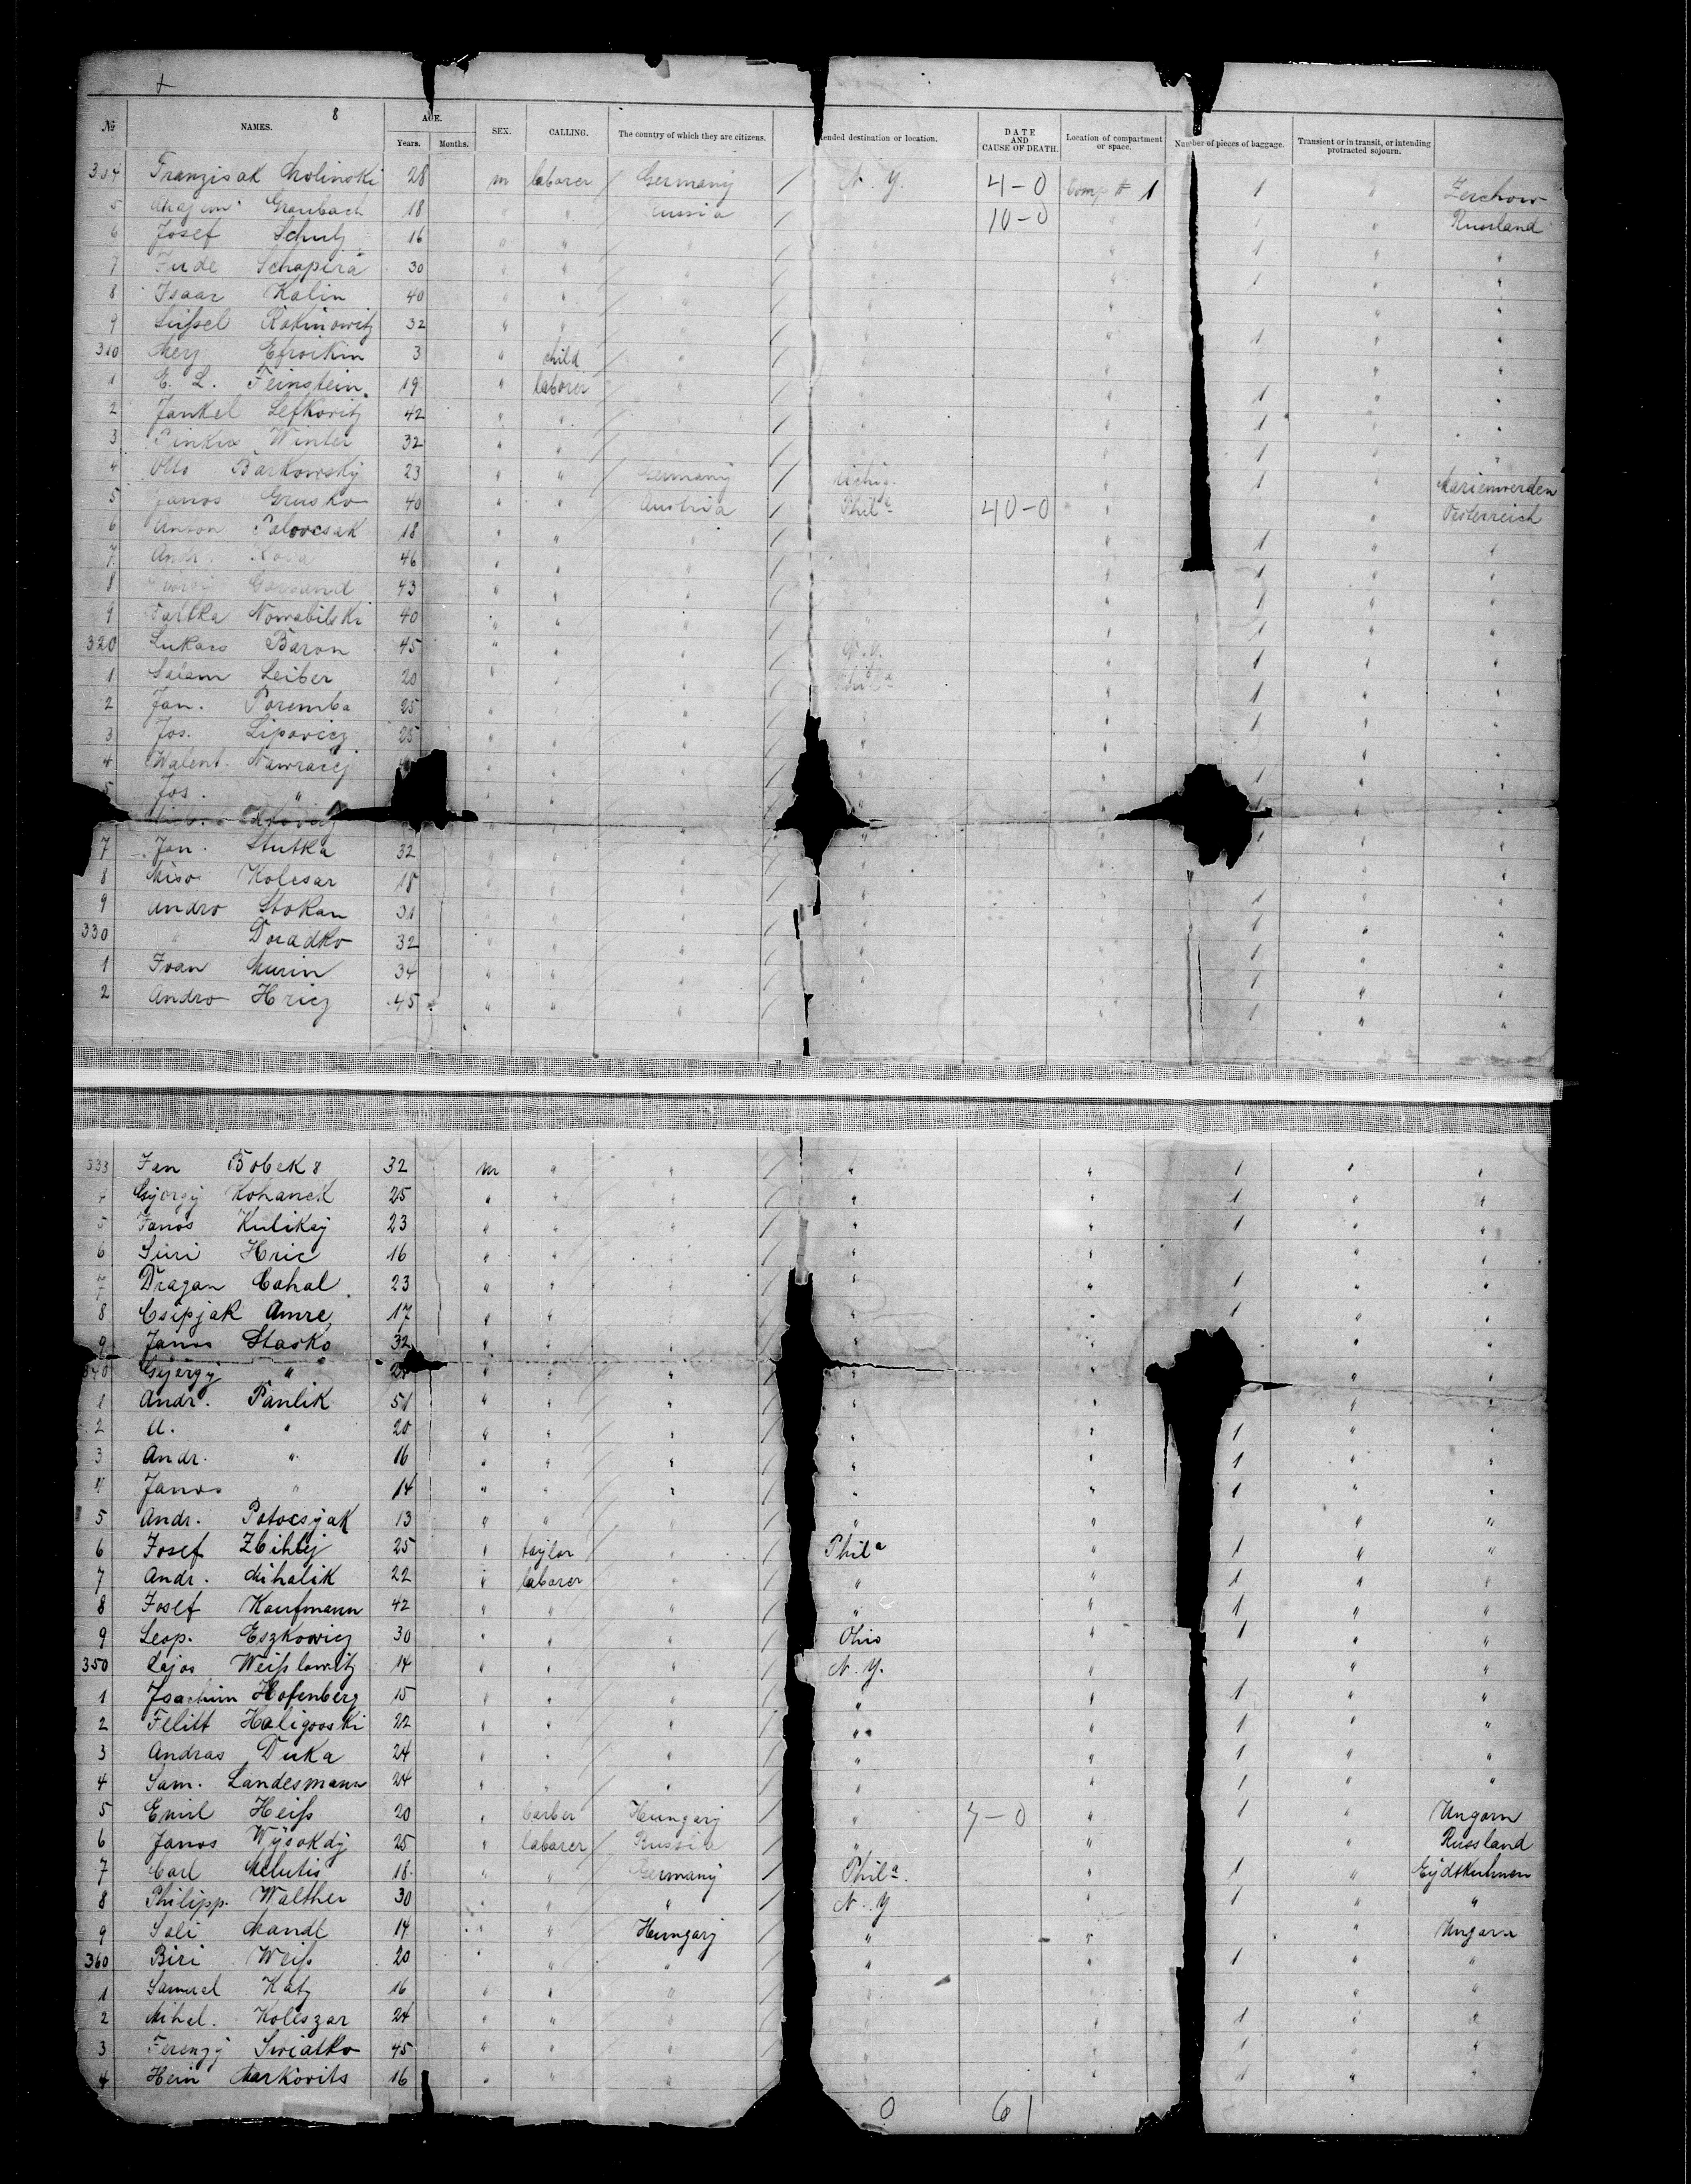 8
№ NAMES. AGE. Years. Months. SEX. CALLING. The country of which they are citizens. ended destination or location. DATE AND CAUSE OF DEATH. Location of compartment or space. Number of pieces of baggage. Transient or in transit, or intending protracted sojourn.
304 28 m laborer Germany N. Y. 4-0 Comp # 1 1 " Zerchow
5 Graubach 18 " " Russia 10-0 " " Russland
6 Josef Schulz 16 " " " " " 1 " "
7 Jude Schapira 30 " " " " " 1 " "
8 Isaac Kalin 40 " " " " " " "
9 Rabinowitz 32 " " " " " 1 " "
310 Mery Efroikin 3 " child " " " " "
1 E. L. Feinstein 19 " laborer " " 1 " "
2 Jankel Lefkovitz 42 " " " " 1 " "
3 Pinkus Winter 32 " " " " 1 " "
4 Otto Barkowsky 23 " " Germany " 1 " Marienwerden
5 Janos Grusko 40 " " Austria Phila 40-0 " " Oesterreich
6 Anton Palovcsak 18 " " " " " 1 " "
7 Andr. 46 " " " " " 1 " "
8 43 " " " " " 1 " "
9 Nowabilski 40 " " " " " 1 " "
320 Lukacs Baron 45 " " " N. Y. " 1 " "
1 Salam Leiber 20 " " " Phila " 1 " "
2 Jan. Poremba 25 " " " " " 1 " "
3 Jos. Lipovicz 25 " " " " " "
4 Walent. Nawracij " " " " " 1 " "
5 Jos. " " " " " "
7 Jan. Stutka 32 " " " " 1 " "
8 Miso Kolesar 18 " " " " "
9 Andro Stokan 31 " " " " 1 "
330 " Doradko 32 " " " " " 1 " "
1 Ivan Murin 34 " " " " " 1 " "
2 Andro Hricz 45 " " " " 1 " "
333 Jan Bobek 8 32 m " " " " 1 " "
4 György Kohanek 25 " " " " " 1 " "
5 Janos Kulikaj 23 " " " " " 1 " "
6 Suri Hric 16 " " " " " " "
7 Dragan Cahal 23 " " " " " 1 " "
8 Csipjak Amre 17 " " " " " 1 " "
9 Janos Stasko 32 " " " " " " "
340 György " " " " " " " "
1 Andr. Panlik 51 " " " " " " "
2 A. " 20 " " " " " 1 " "
3 Andr. " 16 " " " " " 1 " "
4 Janos " 14 " " " " " 1 " "
5 Andr. Potocsyak 13 " " " " " " "
6 Josef Zbihlej 25 " taylor " Phila " 1 " "
7 Andr. Mihalik 22 " laborer " " " 1 " "
8 Josef Kaufmann 42 " " " " " 1 " "
9 Leop. Eszkowicz 30 " " " Ohio " 1 " "
350 Lajos Weißlowitz 14 " " " N. Y. " " "
1 Joachim Hofenberg 15 " " " " " 1 " "
2 Felitt Haligowski 22 " " " " " 1 " "
3 Andras Duka 24 " " " " " 1 " "
4 Sam. Landesmann 24 " " " " " 1 " "
5 Emil Heiß 20 " barber Hungary " 7-0 " 1 " Ungarn
6 Janos Wysokdy 25 " laborer Russia " " " Russland
7 Carl Melutis 18 " " Germany Phila. " 1 " Eydtkuhnen
8 Philipp. Walther 30 " " " N. Y " 1 " "
9 Sali Mandl 14 " " Hungary " " " Ungarn
360 Biri Weiß 20 " " " " " 1 " "
1 Samuel Katz 16 " " " " " " "
2 Mihal. Koleszar 24 " " " " " 1 " "
3 Ferenzy Swiatko 45 " " " " " 1 " "
4 Hein Markovits 16 " " " " " 1 " "
0 61